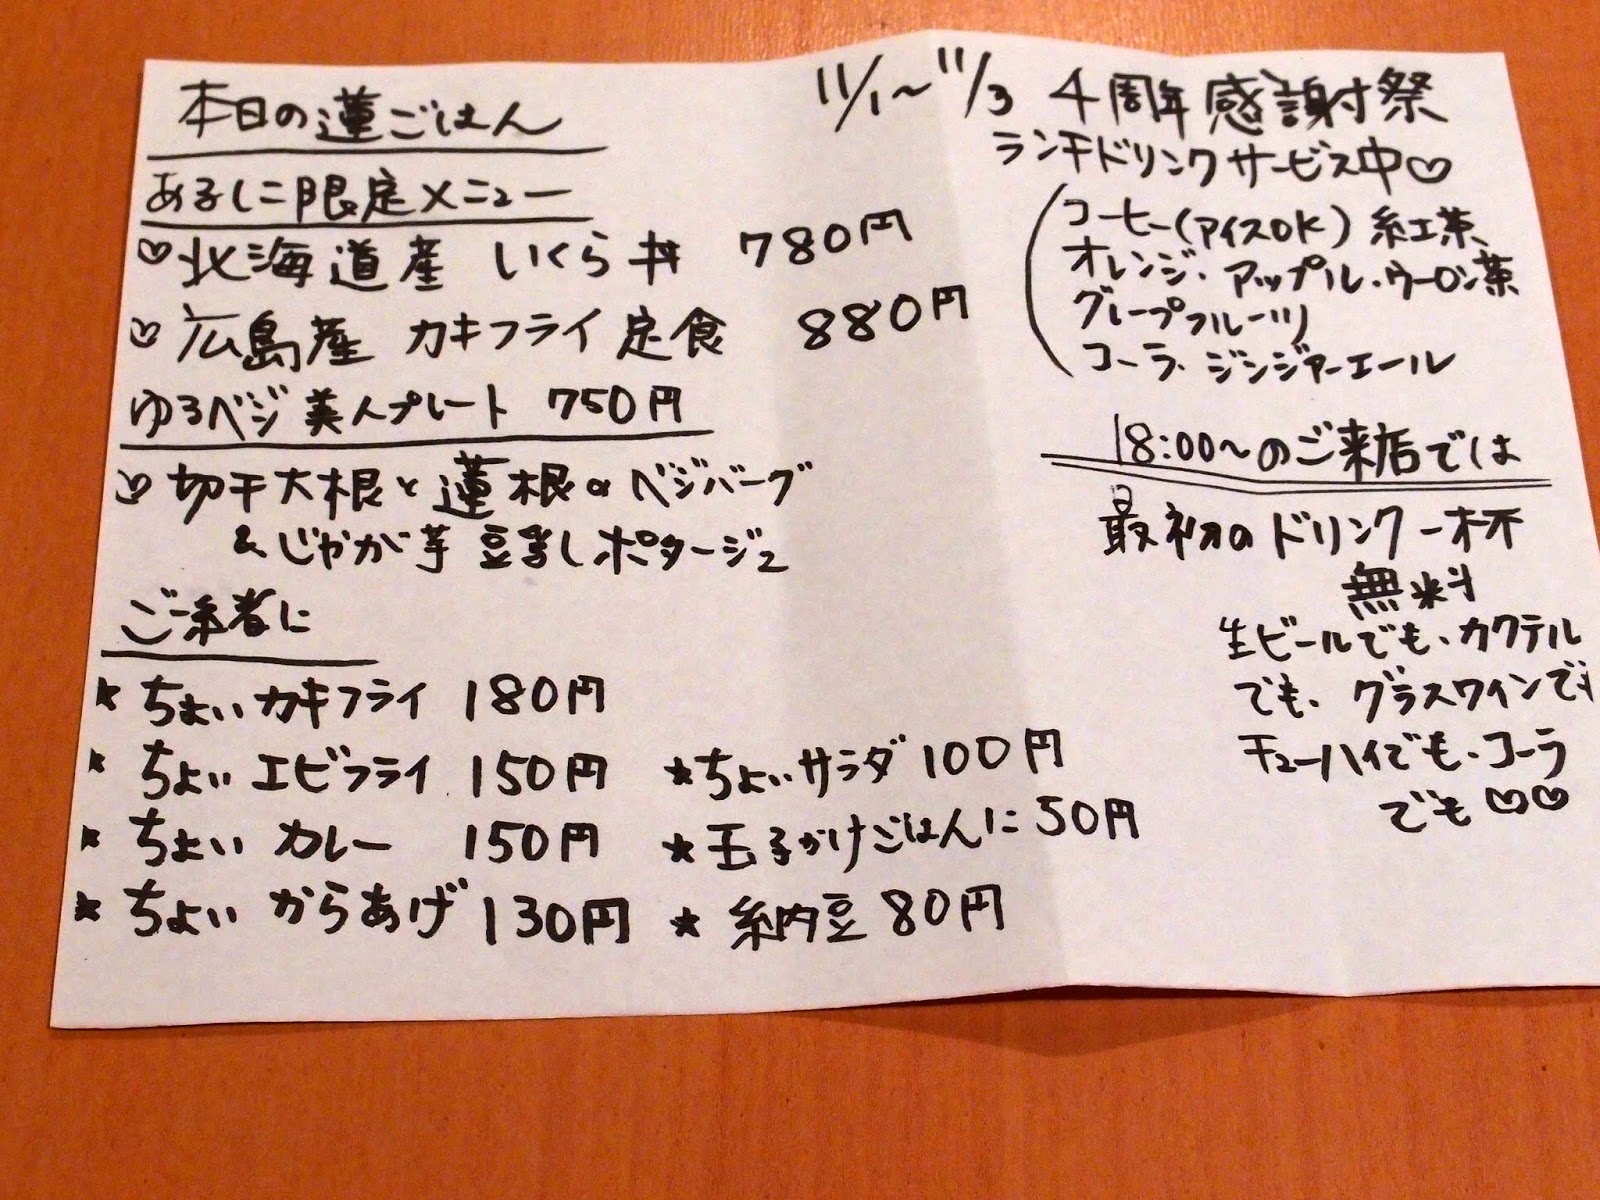 本日の蓮ごはん
あるしに限定メニュー
♡北海道産 いくら丼 780円
♡広島産 カキフライ定食 880円
ゆるベジ美人プレート 750円
♡切干大根と蓮根のベジバーグ
&じゃがい芋豆乳しポタージュ
ご一糸者に
★ちょいカキフライ 180円
★ちょいエビフライ 150円
★ちょいカレー 150円
★ちょいからあげ 130円
★ちょいサラダ 100円
★玉子かけごはんに 50円
★納豆 80円
11/1～11/3 4周年感謝祭
ランチドリンクサービス中♡
(コーヒー(アイスOK) 紅茶
オレンジ・アップル・ウーロン茶
グレープフルーツ
コーラ・ジンジャーエール
18:00～のご来店では
最初のドリンク一杯
無料
生ビールでも、カクテル
でも、グラスワインでも
チューハイでも、コーラ
でも♡♡